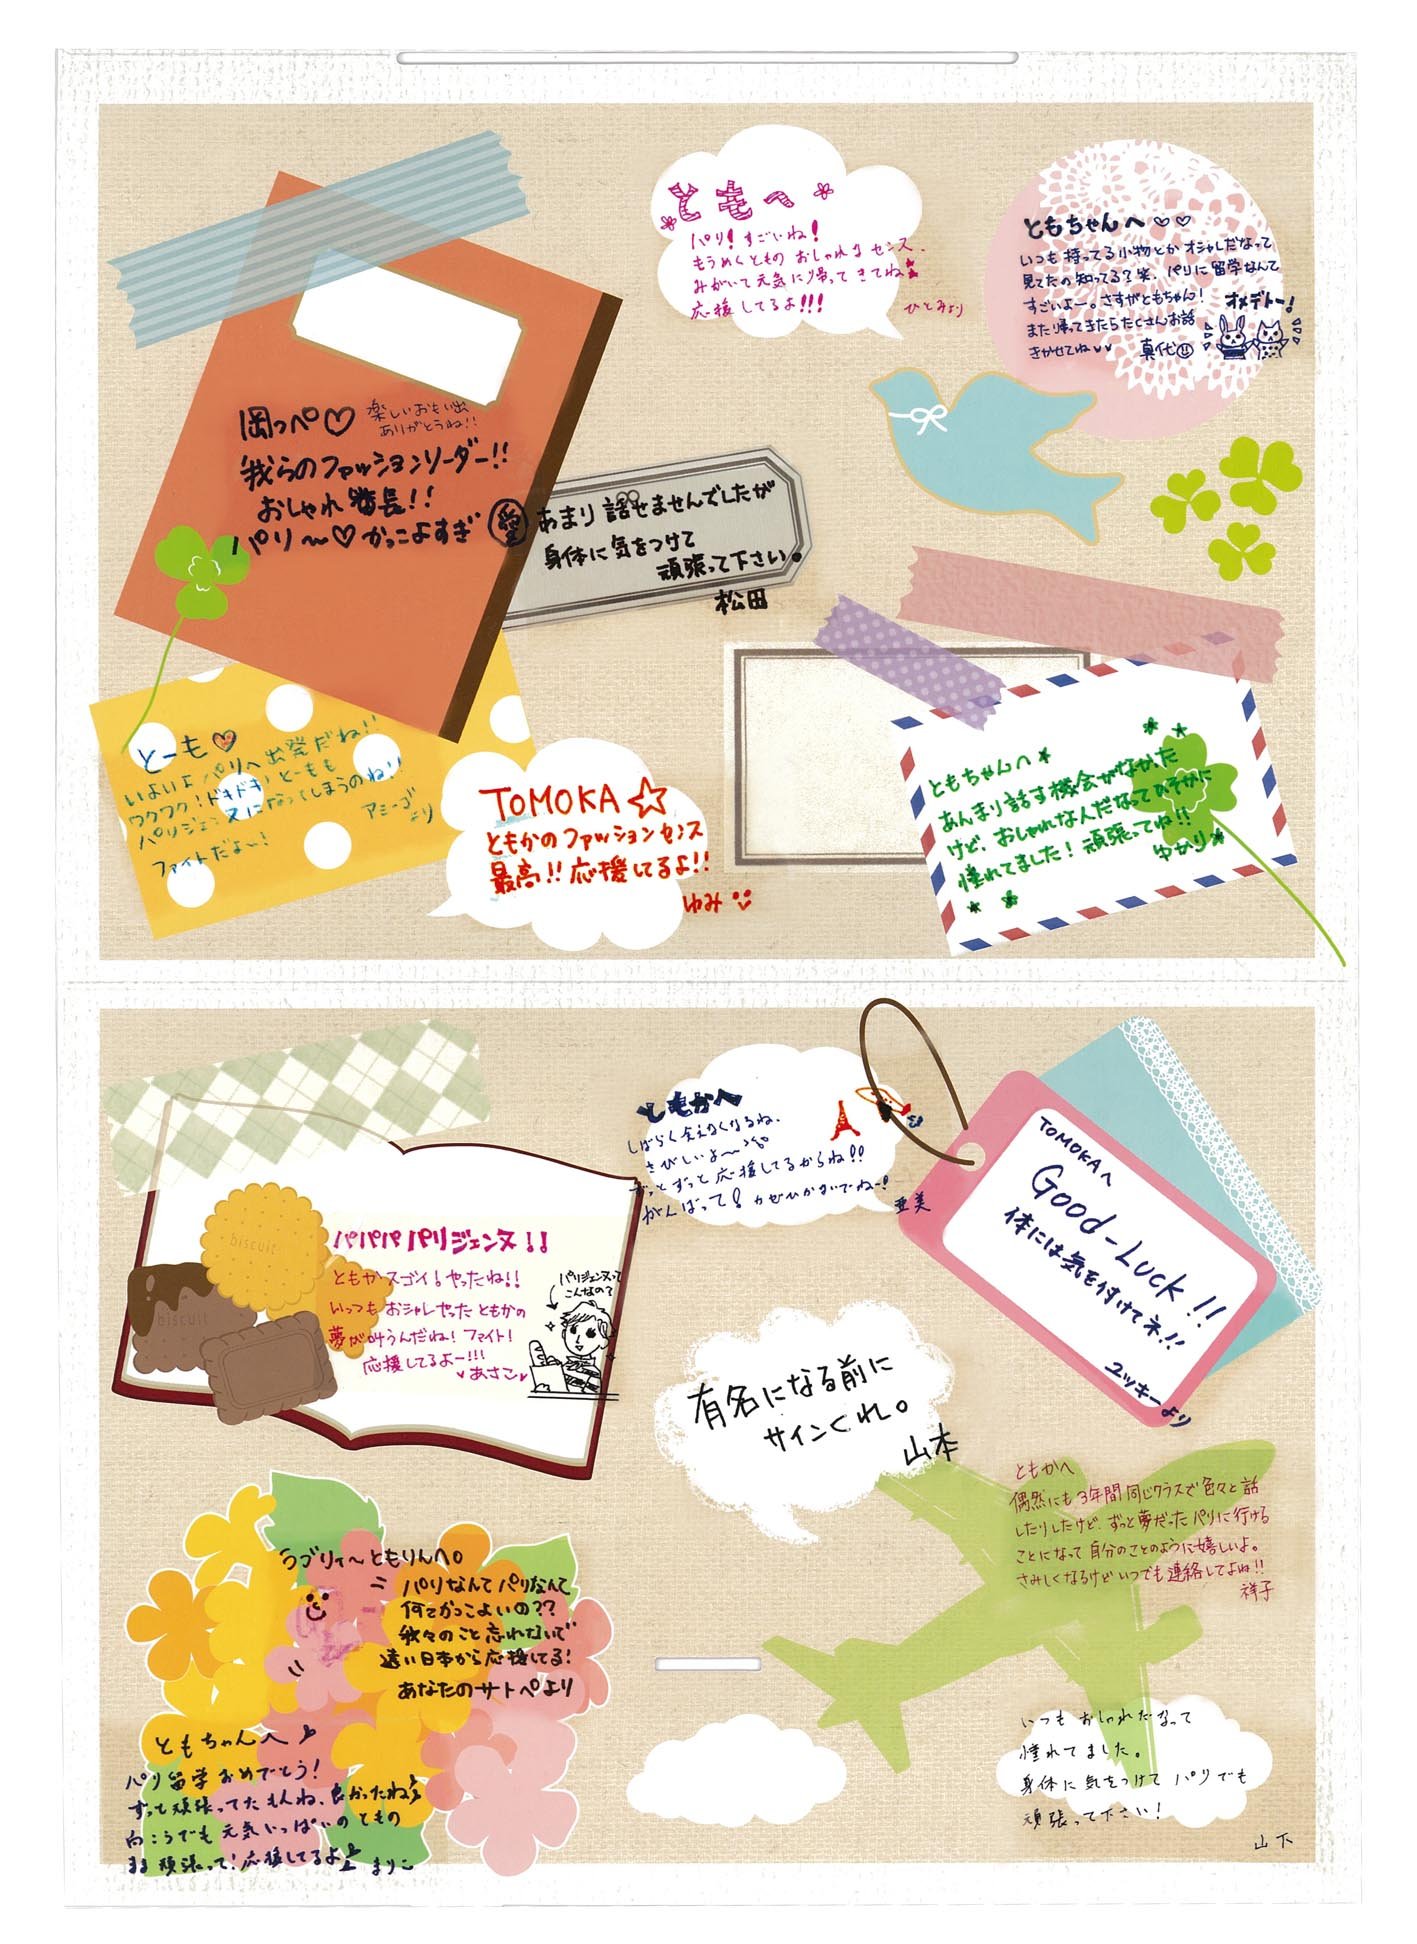 ともへ
パリ!すごいね!
もうめくともの おしゃれな センス、
みがいて元気に帰って きてね
応援してるよ!!!
ひとみより
ともちゃんへ♡♡
いつも 持ってる小物とか オシャレだなって
見てたの知ってる?笑、パリに留学なんて
すごいよー。さすがともちゃん!
また帰ってきたらたくさんお話
きかせてね
真代
オメデトー!
岡っぺ♡
楽しいおもい出
ありがとうね!!
我らのファッションリーダー!!
おしゃれ番長!!
パリ〜♡かっこよすぎ
愛
あまり話せませんでしたが
身体に気をつけて
頑張って下さい。
松田
とーも♡
いよいよ パリへ 出発だね!!
ワクワク!ドキドキ! とーもも
パリジェンヌに なってしまうのね!!
ファイトだよ〜!
アミーゴ
より
TOMOKA☆
ともかのファッションセンス
最高!!応援してるよ!!
ゆみ
ともちゃんへ
あんまり話す機会がなかった
けど、おしゃれな人だなってひそかに
憧れてました!頑張ってね!!
ゆかり
ともかへ
しばらく会えなくなるね、
さびしいよ〜
ずっとずっと応援してるからね!!
がんばって! カゼひかないでねー!
亜美
TOMOKAへ
Good-Luck!!
体には気を付けてネ!!
ユッキーより
biscuit
biscuit
パパパパリジェンヌ!!
ともかスゴイ!やったね!!
いっつもおシャレやった ともかの
夢が叶うんだね!ファイト!
応援してるよー!!!
あさこ
パリジェンヌって
こんなの?
有名になる前に
サインくれ。
山本
ともかへ
偶然にも3年間同じクラスで色々と話
したりしたけど、ずっと夢だったパリに行ける
ことになって自分のことのように嬉しいよ。
さみしくなるけどいつでも連絡してよね!!
祥子
ラブリィ〜ともりんへ。
パリなんてパリなんて
何てかっこよいの??
我々のこと忘れないで
遠い日本から応援してる!
あなたのサトペより
ともちゃんへ♪
パリ留学おめでとう!
ずっと頑張ってたもんね、良かったね♪
向こうでも元気いっぱいのともの
まま頑張って!応援してるよ
まりこ
いつも おしゃれだなって
憧れてました。
身体に気をつけて パリでも
頑張って下さい!
山下